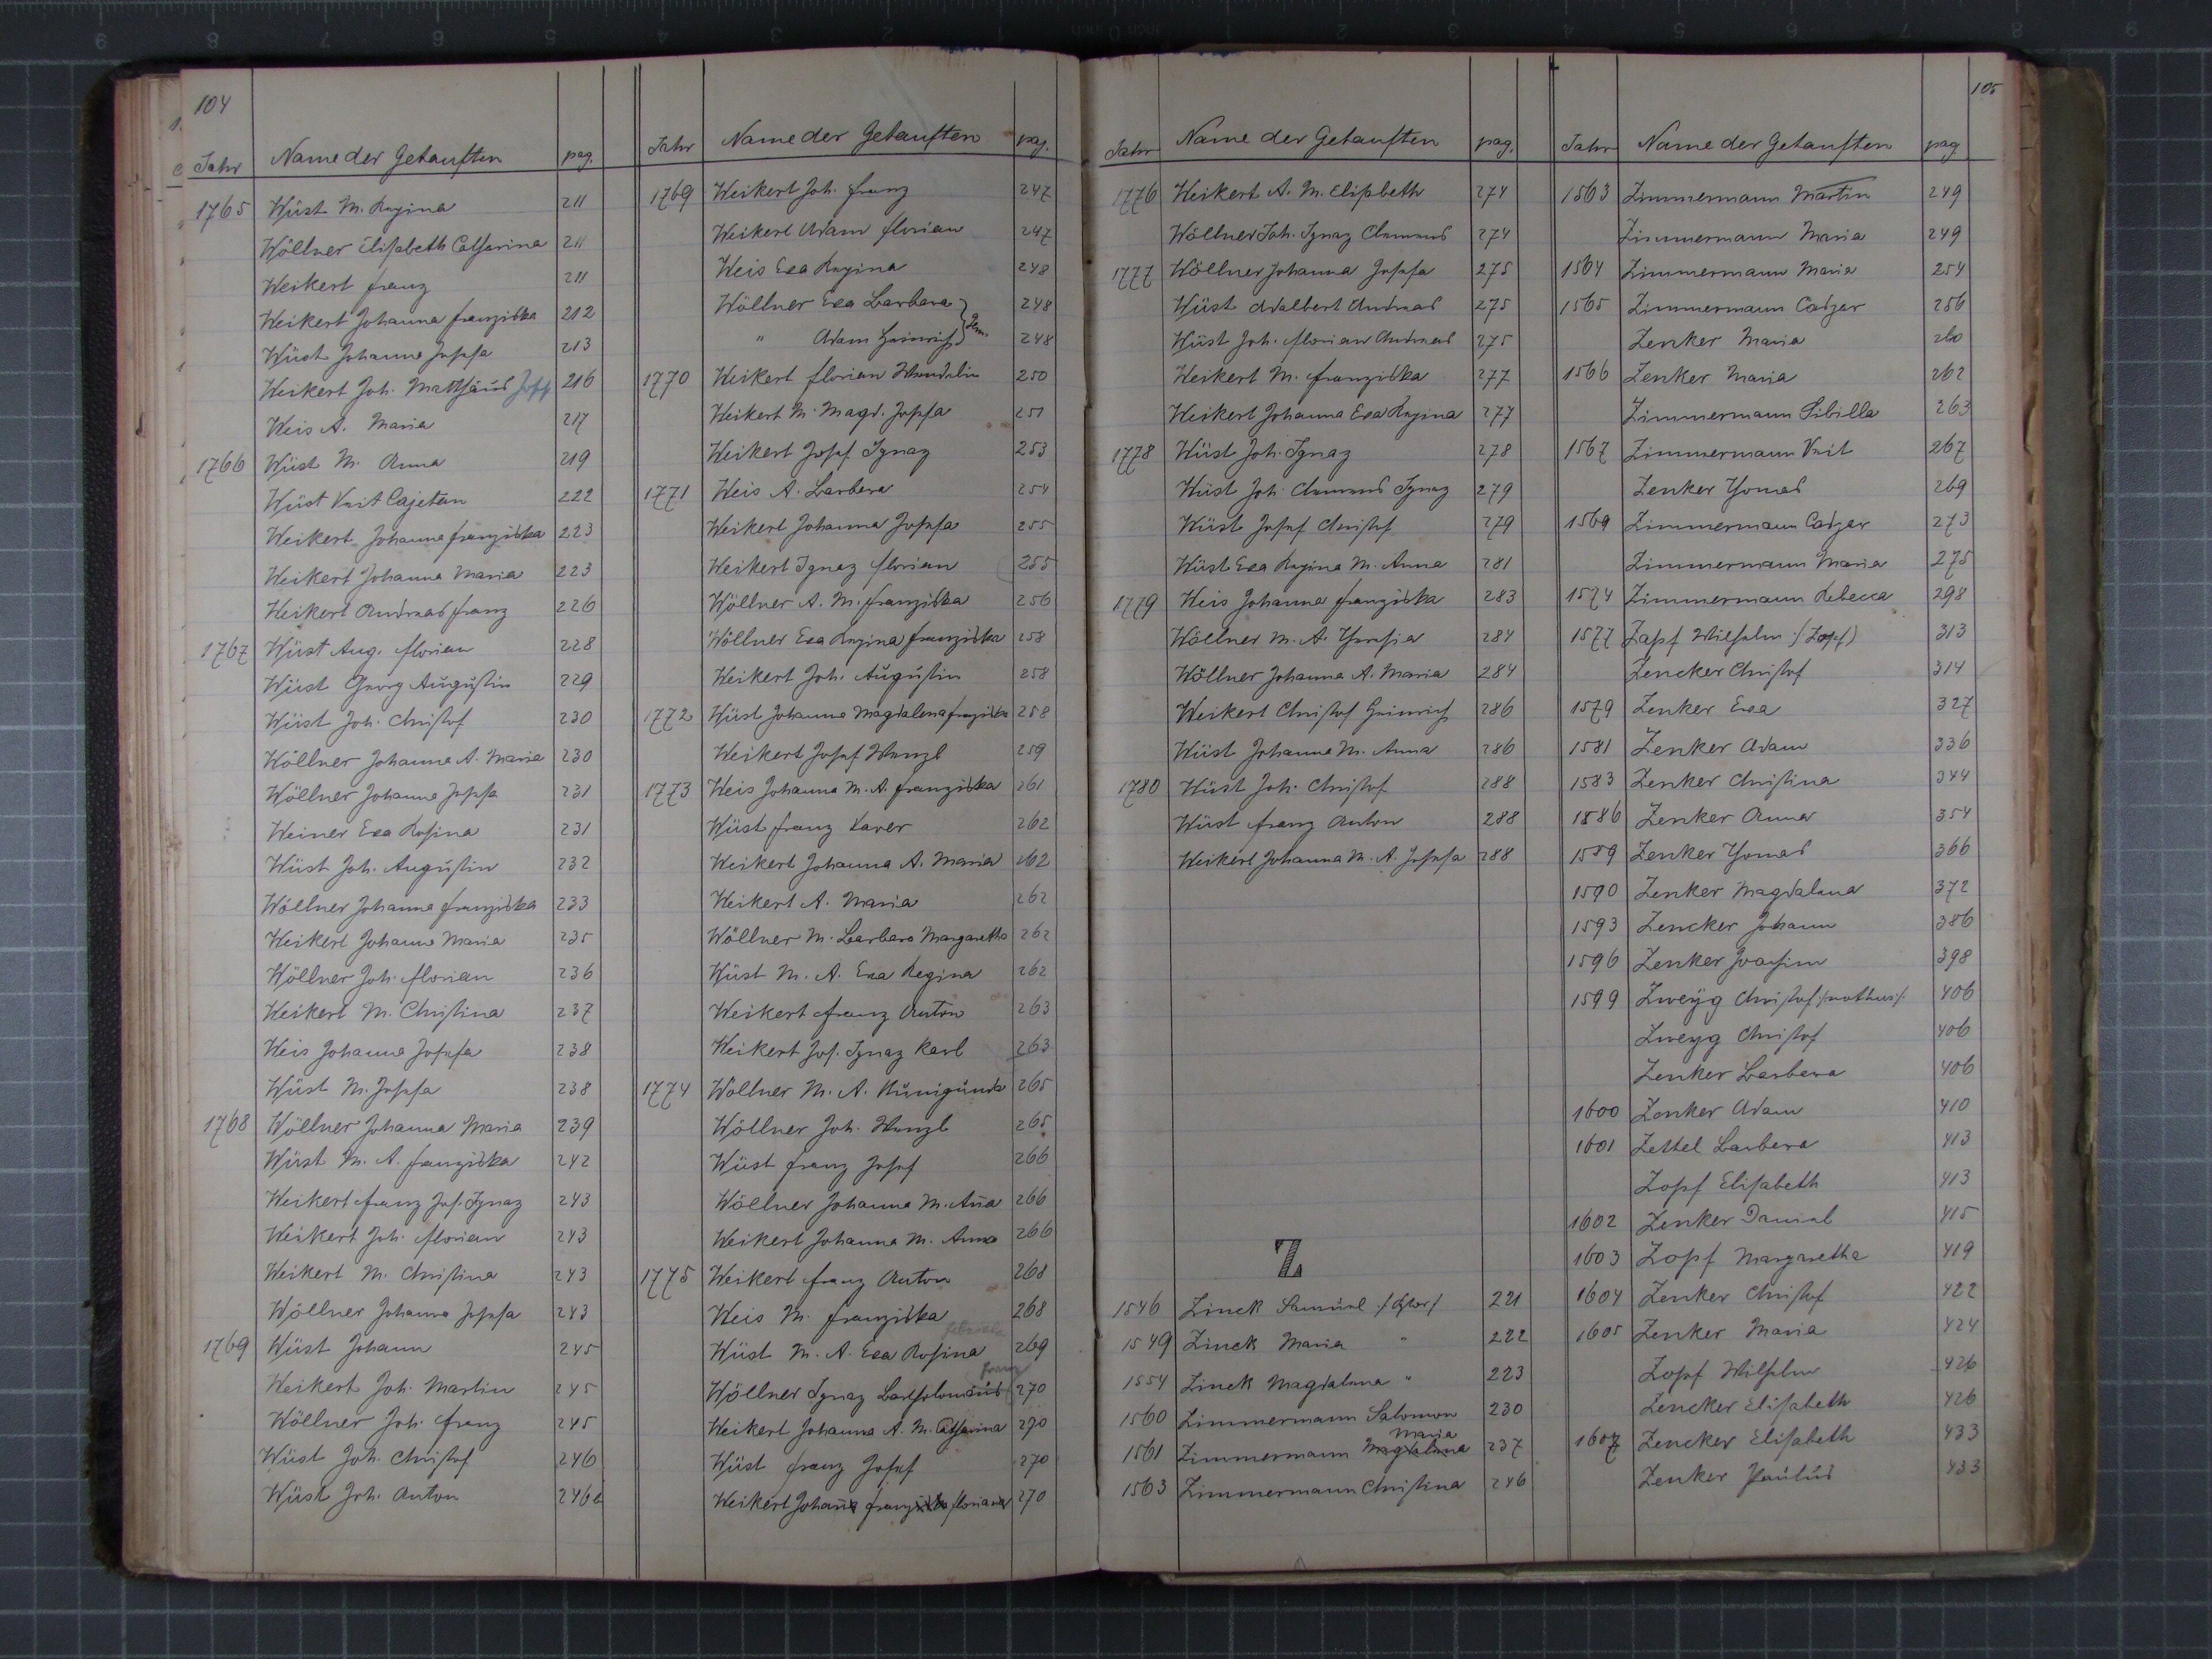 104
Jahr Name der Getauften pag.
1765 Wüst M. Regina 211
Wöllner Elisabeth Catharina 211
Weikert Franz 211
Weikert Johanna Franziska 212
Wüst Johanna Josefa 213
Weikert Joh. Matthäus Josef 216
Weis A. Maria 217
1766 Wüst M. Anna 219
Wüst Veit Cajetan 222
Weikert Johanna Franziska 223
Weikert Johanna Maria 223
Weikert Andreas Franz 226
1767 Wüst Aug. Florian 228
Wüst Georg Augustin 229
Wüst Joh. Christof 230
Wöllner Johanna A. Maria 230
Wöllner Johanna Josefa 231
Weiner Eva Rosina 231
Wüst Joh. Augustin 232
Wöllner Johanna Franziska 233
Weikert Johanna Maria 235
Wöllner Joh. Florian 236
Weikert M. Christina 237
Weis Johanna Josefa 238
Wüst M. Josefa 238
1768 Wöllner Johanna Maria 239
Wüst M. A. Franziska 242
Weikert Franz Jos. Ignaz 243
Weikert Joh. Florian 243
Weikert M. Christina 243
Wöllner Johanna Josefa 243
1769 Wüst Johann 245
Weikert Joh. Martin 245
Wöllner Joh. Franz 245
Wüst Joh. Christof 246
Wüst Joh. Anton 246b
Jahr Name der Getauften pag.
1769 Weikert Joh. Franz 247
Weikert Adam Florian 247
Weis Eva Regina 248
Wöllner Eva Barbara 248
" Adam Heinrich 248
1770 Weikert Florian Wendelin 250
Weikert M. Magd. Josefa 251
Weikert Josef Ignaz 253
1771 Weis A. Barbara 254
Weikert Johanna Josefa 255
Weikert Ignaz Florian 255
Wöllner A. M. Franziska 256
Wöllner Eva Regina Franziska 258
Weikert Joh. Augustin 258
1772 Wüst Johanna Magdalena Franziska 258
Weikert Josef Wenzl 259
1773 Weis Johanna M. A. Franziska 261
Wüst Franz Xaver 262
Weikert Johanna A. Maria 262
Weikert A. Maria 262
Wöllner M. Barbara Margaretha 262
Wüst M. A. Eva Regina 262
Weikert Franz Anton 263
Weikert Jos. Ignaz Karl 263
1774 Wöllner M. A. Kunigunda 265
Wöllner Joh. Wenzl 265
Wüst Franz Josef 266
Wöllner Johanna M. Aña 266
Weikert Johanna M. Anna 266
1775 Weikert Franz Anton 268
Weis M. Franziska 268
Wüst M. A. Eva Rosina 269
Franz
Wöllner Ignaz Bartholomäus 270
Weikert Johanna A. M. Catharina 270
Wüst Franz Josef 270
Weikert Johana Franziska Florian 270
105
Jahr Name der Getauften pag.
1776 Weikert A. M. Elisabeth 274
Wöllner Joh. Ignaz Clemens 274
1777 Wöllner Johanna Josefa 275
Wüst Adalbert Andreas 275
Wüst Joh. Florian Andreas 275
Weikert M. Franziska 277
Weikert Johanna Eva Regina 277
1778 Wüst Joh. Ignaz 278
Wüst Joh. Clemens Ignaz 279
Wüst Josef Christof 279
Wüst Eva Regina M. Anna 281
1779 Weis Johanna Franziska 283
Wöllner M. A. Theresia 284
Wöllner Johanna A. Maria 284
Weikert Christof Heinrich 286
Wüst Johanna M. Anna 286
1780 Wüst Joh. Christof 288
Wüst Franz Anton 288
Weikert Johanna M. A. Josefa 288
Z
1546 Zinck Samuel 221
1549 Zinck Maria " 222
1554 Zinck Magdalena " 223
1560 Zimmermann Salomon 230
Maria
1561 Zimmermann Magdalena 237
1563 Zimmermann Christina 246
Jahr Name der Getauften pag
1563 Zimmermann Martin 249
Zimmermann Maria 249
1564 Zimmermann Maria 254
1565 Zimmermann Caspar 256
Zenker Maria 260
1566 Zenker Maria 262
Zimmermann Sibilla 263
1567 Zimmermann Veit 267
Zenker Thomas 269
1569 Zimmermann Caspar 273
Zimmermann Maria 275
1574 Zimmermann Rebecca 298
1577 Zapf Wilhelm (Zopf) 313
Zencker Christof 314
1579 Zenker Eva 327
1581 Zenker Adam 336
1583 Zenker Christina 344
1586 Zenker Anna 354
1589 Zenker Thomas 366
1590 Zenker Magdalena 372
1593 Zencker Johann 386
1596 Zenker Joachim 398
1599 Zweyg Christof /:nothus:/ 406
Zweyg Christof 406
Zenker Barbara 406
1600 Zenker Adam 410
1601 Zettel Barbara 413
Zopf Elisabeth 413
1602 Zenker Daniel 415
1603 Zopf Margaretha 419
1604 Zenker Christof 422
1605 Zenker Maria 424
Zopf Wilhelm 426
Zencker Elisabeth 426
1607 Zencker Elisabeth 433
Zenker Paulus 433